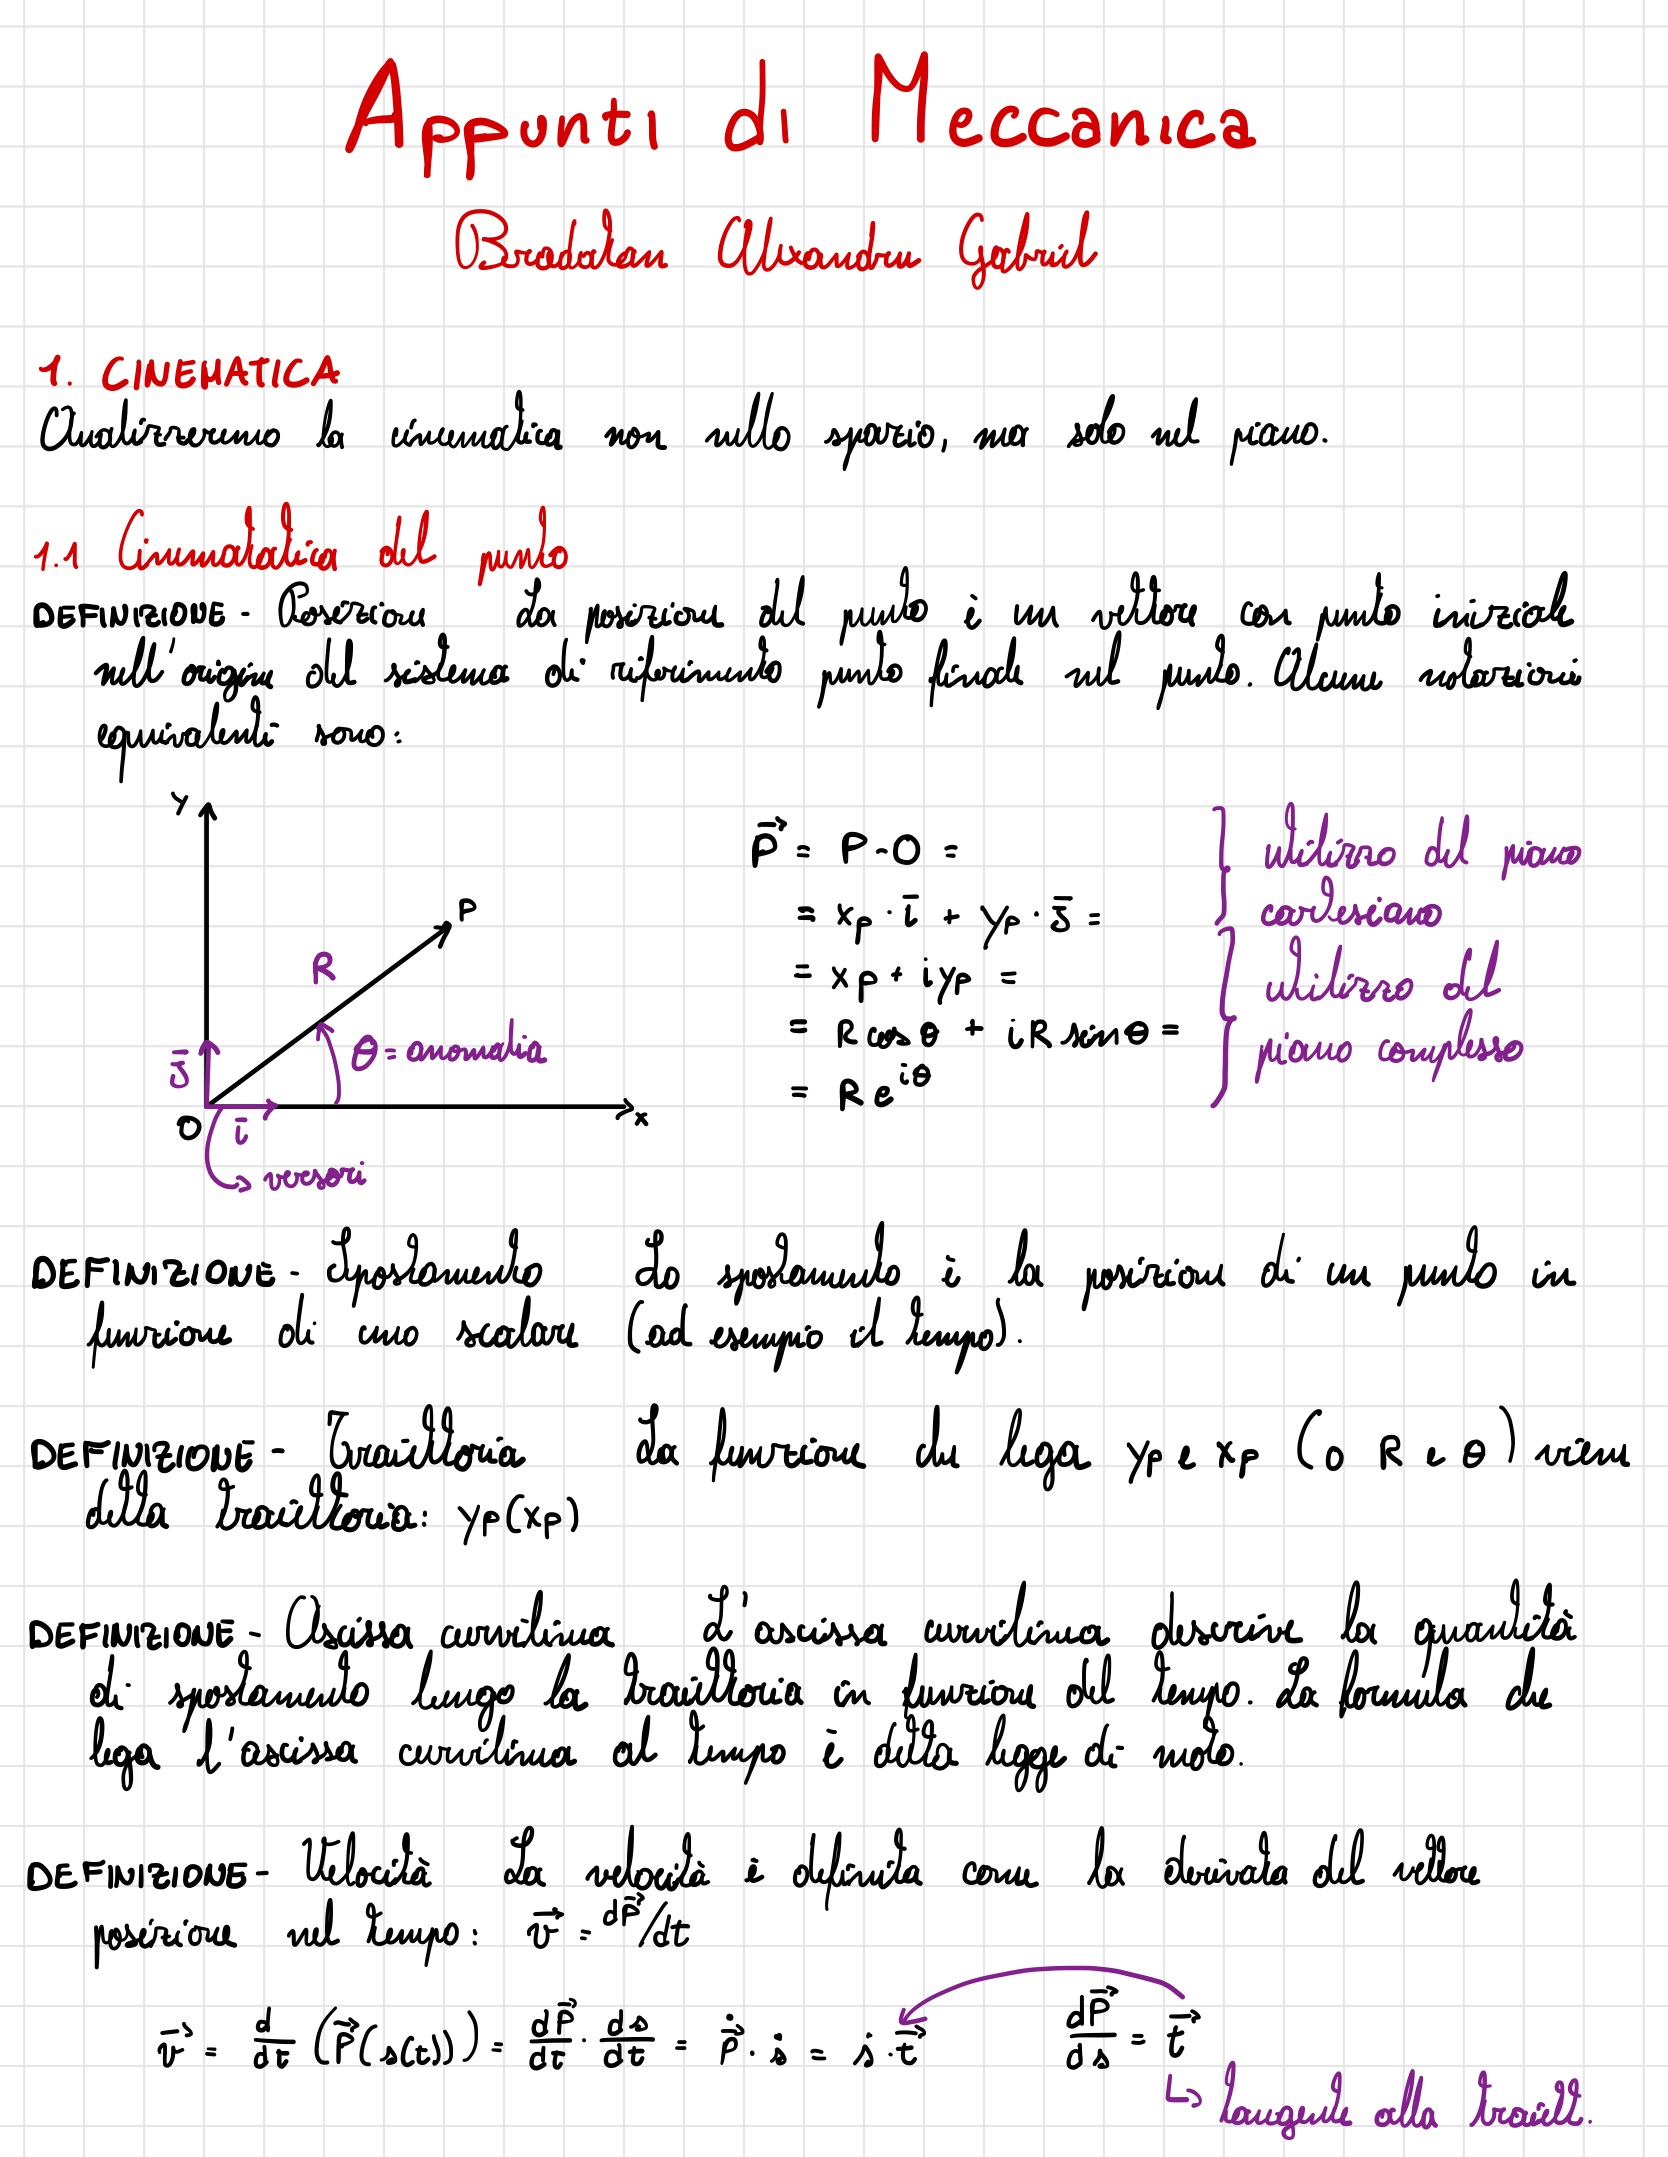 Appunti di Meccanica
Bradatan Alexandru Gabriel
1. CINEMATICA
Analizzeremo la cinematica non nello spazio, ma solo nel piano.
1.1 Cinematatica del punto
DEFINIZIONE - Posizione La posizione del punto è un vettore con punto iniziale
nell'origine del sistema di riferimento punto finale nel punto. Alcune notazioni
equivalenti sono:
y
P
R
θ = anomalia
j̄
O
ī
x
versori
P⃗ = P-O =
= xp · ī + yp · j̄ =
= xp + iyp =
= R cos θ + i R sin θ =
= R e^{iθ}
utilizzo del piano
cartesiano
utilizzo del
piano complesso
DEFINIZIONE - Spostamento Lo spostamento è la posizione di un punto in
funzione di uno scalare (ad esempio il tempo).
DEFINIZIONE - Traiettoria La funzione che lega yp e xp (o R e θ) viene
detta traiettoria: yp(xp)
DEFINIZIONE - Ascissa curvilinea L'ascissa curvilinea descrive la quantità
di spostamento lungo la traiettoria in funzione del tempo. La formula che
lega l'ascissa curvilinea al tempo è detta legge di moto.
DEFINIZIONE - Velocità La velocità è definita come la derivata del vettore
posizione nel tempo: v⃗ = dP⃗/dt
v⃗ = d/dt (P⃗(s(t))) = dP⃗/dt · ds/dt = Ṗ⃗ · ṡ = ṡ · t⃗ dP⃗/ds = t⃗
↳ tangente alla traiett.